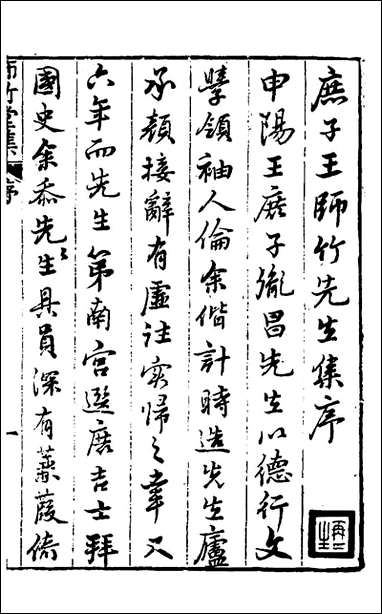 庶子王師竹先生集序
申陽王庶子胤昌先生以德行文
學領袖人倫余偕計時造先生廬
承顏接辭有虛往實歸之幸又
六年而先生第南宮選庶吉士拜
國史余忝先生具員深有蒹葭倚
師竹堂集
序
一